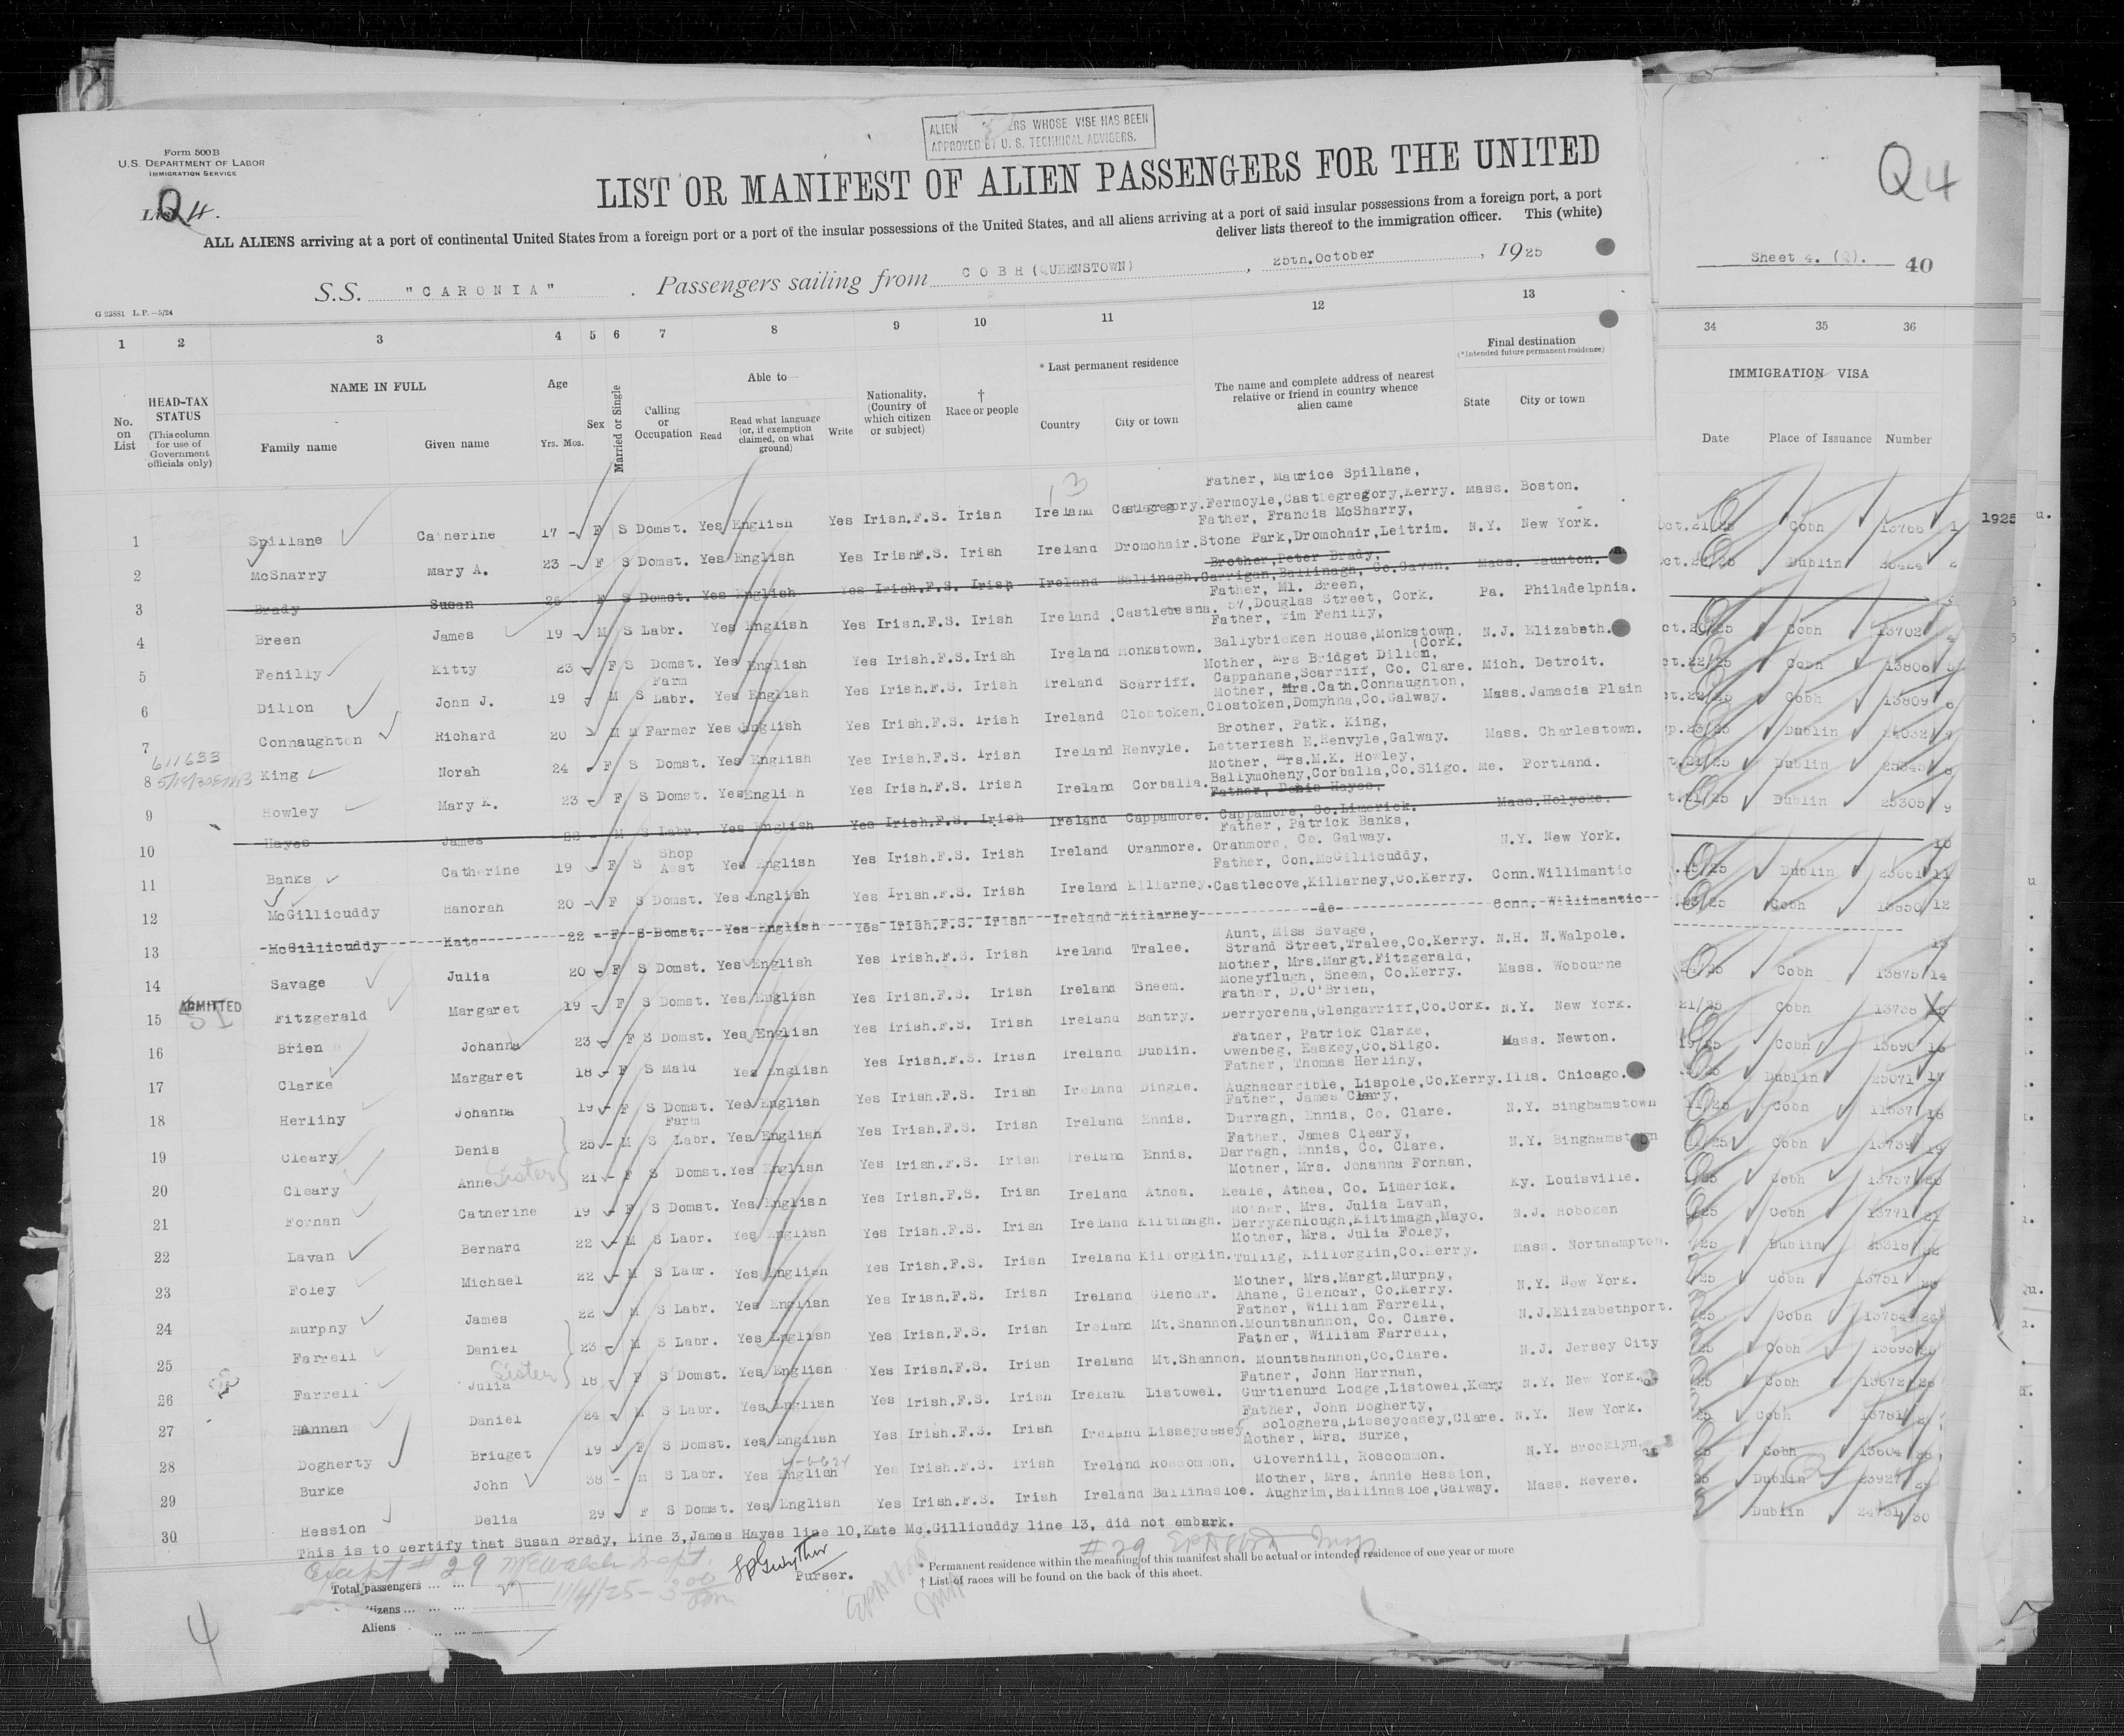 ALIEN PASSENGERS WHOSE VISE HAS BEEN
APPROVED BY U. S. TECHNICAL ADVISERS.
Form 500 B
U.S. DEPARTMENT OF LABOR
IMMIGRATION SERVICE
List Q 4.
LIST OR MANIFEST OF ALIEN PASSENGERS FOR THE UNITED
ALL ALIENS arriving at a port of continental United States from a foreign port or a port of the insular possessions of the United States, and all aliens arriving at a port of said insular possessions from a foreign port, a port
deliver lists thereof to the immigration officer. This (white)
S.S. "CARONIA" . Passengers sailing from COBH (QUEENSTOWN) , 25th.October , 1925
G 23881 L.P.—5/24
Q4
Sheet 4. (Q). 40
1 2 3 4 5 6 7 8 9 10 11 12 13 34 35 36
No. on List
HEAD-TAX STATUS
(This column for use of Government officials only)
NAME IN FULL
Family name Given name
Age
Yrs. Mos.
Sex
Married or Single
Calling or Occupation
Able to
Read Read what language (or, if exemption claimed, on what ground) Write
Nationality, (Country of which citizen or subject)
† Race or people
* Last permanent residence
Country City or town
The name and complete address of nearest relative or friend in country whence alien came
Final destination
(*Intended future permanent residence)
State City or town
IMMIGRATION VISA
Date Place of Issuance Number
13
1 Spillane Catherine 17 - F S Domst. Yes English Yes Irish.F.S. Irish Ireland Castlegregory. Father, Maurice Spillane, Fermoyle,Castlegregory,Kerry. Mass. Boston. Oct.21/25 Cobh 13766 1
2 McSharry Mary A. 23 - F S Domst. Yes English Yes Irish.F.S. Irish Ireland Dromohair. Father, Francis McSharry, Stone Park,Dromohair,Leitrim. N.Y. New York. Dublin 2
3 Brady Susan 26 - F S Domst. Yes English Yes Irish.F.S. Irish Ireland Ballinagh. Brother,Peter Brady, Carrigan,Ballinagh, Co.Cavan. Mass. Taunton. 3
4 Breen James 19 - M S Labr. Yes English Yes Irish.F.S. Irish Ireland Father, Ml. Breen, 57,Douglas Street, Cork. Pa. Philadelphia. Oct.20/25 Cobh 13702 4
5 Fehilly Kitty 23 F S Domst. Yes English Yes Irish.F.S. Irish Ireland Monkstown. Father, Tim Fehilly, Ballybricken House,Monkstown. (Cork. N.J. Elizabeth. ct.22/25 Cobh 13806 5
6 Dillon John J. 19 - M S Farm Labr. Yes English Yes Irish.F.S. Irish Ireland Scarriff. Mother, Mrs Bridget Dillon, Cappahane,Scarriff, Co. Clare. Mich. Detroit. Cobh 13809 6
7 Connaughton Richard 20 M M Farmer Yes English Yes Irish.F.S. Irish Ireland Clostoken. Mother, Mrs.Cath.Connaughton, Clostoken,Domyhna,Co.Galway. Mass. Jamacia Plain Dublin 7
611633
8 King Norah 24 F S Domst. Yes English Yes Irish.F.S. Irish Ireland Renvyle. Brother, Patk. King, Letteriesh E.Renvyle,Galway. Mass. Charlestown. Dublin 25345 8
9 Howley Mary K. 23 F S Domst. Yes English Yes Irish.F.S. Irish Ireland Corballa. Mother, Mrs.M.K. Howley, Ballymoheny,Corballa,Co.Sligo. Me. Portland. Dublin 25305 9
10 Hayes James 22 - M S Labr. Yes English Yes Irish.F.S. Irish Ireland Cappamore. Father, Denis Hayes, Cappamore, Co.Limerick. Mass. Holyoke. 10
11 Banks Catherine 19 F S Shop Asst Yes English Yes Irish.F.S. Irish Ireland Oranmore. Father, Patrick Banks, Oranmore, Co. Galway. N.Y. New York. Dublin 11
12 McGillicuddy Hanorah 20 - F S Domst. Yes English Yes Irish.F.S. Irish Ireland Killarney. Father, Con.McGillicuddy, Castlecove,Killarney,Co.Kerry. Conn. Willimantic Cobh 13850 12
13 McGillicuddy Kate 22 - F S Domst. Yes English Yes Irish.F.S. Irish Ireland Killarney do Conn. Willimantic 13
14 Savage Julia 20 F S Domst. Yes English Yes Irish.F.S. Irish Ireland Tralee. Aunt, Miss Savage, Strand Street,Tralee,Co.Kerry. N.H. N.Walpole. Cobh 13875 14
ADMITTED SI
15 Fitzgerald Margaret 19 - F S Domst. Yes English Yes Irish.F.S. Irish Ireland Sneem. Mother, Mrs.Margt.Fitzgerald, Moneyflugh, Sneem, Co.Kerry. Mass. Wobourne 21/25 Cobh 13738
16 Brien Johanna 23 F S Domst. Yes English Yes Irish.F.S. Irish Ireland Bantry. Father, D.O'Brien, Derrycrena,Glengarriff,Co.Cork. N.Y. New York. 19/25 Cobh 13690 16
17 Clarke Margaret 18 - F S Maid Yes English Yes Irish.F.S. Irish Ireland Dublin. Father, Patrick Clarke, Owenbeg, Easkey,Co.Sligo. Mass. Newton. Dublin 25071 17
18 Herlihy Johanna 19 - F S Domst. Yes English Yes Irish.F.S. Irish Ireland Dingle. Father, Thomas Herlihy, Aughacarrible, Lispole,Co.Kerry. Ills. Chicago. Cobh 18
19 Cleary Denis 25 - M S Farm Labr. Yes English Yes Irish.F.S. Irish Ireland Ennis. Father, James Cleary, Darragh, Ennis, Co. Clare. N.Y. Binghamstown Cobh 13739 19
20 Cleary Anne Sister 21 - F S Domst. Yes English Yes Irish.F.S. Irish Ireland Ennis. Father, James Cleary, Darragh, Ennis, Co. Clare. N.Y. Binghamstown Cobh 13737 20
21 Fornan Catherine 19 F S Domst. Yes English Yes Irish.F.S. Irish Ireland Athea. Mother, Mrs. Johanna Fornan, Keale, Athea, Co. Limerick. Ky. Louisville. Cobh 13771 21
22 Lavan Bernard 22 - M S Labr. Yes English Yes Irish.F.S. Irish Ireland Kiltimagh. Mother, Mrs. Julia Lavan, Derrykenlough,Kiltimagh,Mayo. N.J. Hoboken Dublin 25318 22
23 Foley Michael 22 - M S Labr. Yes English Yes Irish.F.S. Irish Ireland Killorglin. Mother, Mrs. Julia Foley, Tullig, Killorglin,Co.Kerry. Mass. Northampton. Cobh 13751 23
24 Murphy James 22 M S Labr. Yes English Yes Irish.F.S. Irish Ireland Glencar. Mother, Mrs.Margt.Murphy, Ahane, Glencar, Co.Kerry. N.Y. New York. Cobh 13754 24
25 Farrell Daniel 23 M S Labr. Yes English Yes Irish.F.S. Irish Ireland Mt.Shannon. Father, William Farrell, Mountshannon, Co. Clare. N.J. Elizabethport. Cobh 13693 25
26 Farrell Julia Sister 18 F S Domst. Yes English Yes Irish.F.S. Irish Ireland Mt.Shannon. Father, William Farrell, Mountshannon,Co.Clare. N.J. Jersey City Cobh 13672 26
27 Hannan Daniel 24 M S Labr. Yes English Yes Irish.F.S. Irish Ireland Listowel. Father, John Harrnan, Gurtienurd Lodge,Listowel,Kerry N.Y. New York. Cobh 13781
28 Dogherty Bridget 19 - F S Domst. Yes English Yes Irish.F.S. Irish Ireland Lisseycasey. Father, John Dogherty, Bologhera,Lisseycasey,Clare. N.Y. New York. Cobh 13604 28
29 Burke John 38 - M S Labr. Yes English Yes Irish.F.S. Irish Ireland Roscommon. Mother, Mrs. Burke, Cloverhill, Roscommon. N.Y. Brooklyn Dublin 23927 29
30 Hession Delia 29 F S Domst. Yes English Yes Irish.F.S. Irish Ireland Ballinasloe. Mother, Mrs. Annie Hession, Aughrim,Ballinasloe,Galway. Mass. Revere. Dublin 24731 30
This is to certify that Susan Brady, Line 3,James Hayes line 10,Kate Mc.Gillicuddy line 13, did not embark.
Except # 29
11/4/25 - 3 00 pm
Purser.
#29
Total passengers
Citizens
Aliens
4
* Permanent residence within the meaning of this manifest shall be actual or intended residence of one year or more
† List of races will be found on the back of this sheet.
1925